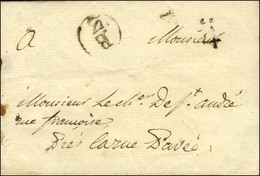 A Monsieur
Monsieur Le ch.er De St. andré
rue françoise
Prés la rue Pavée